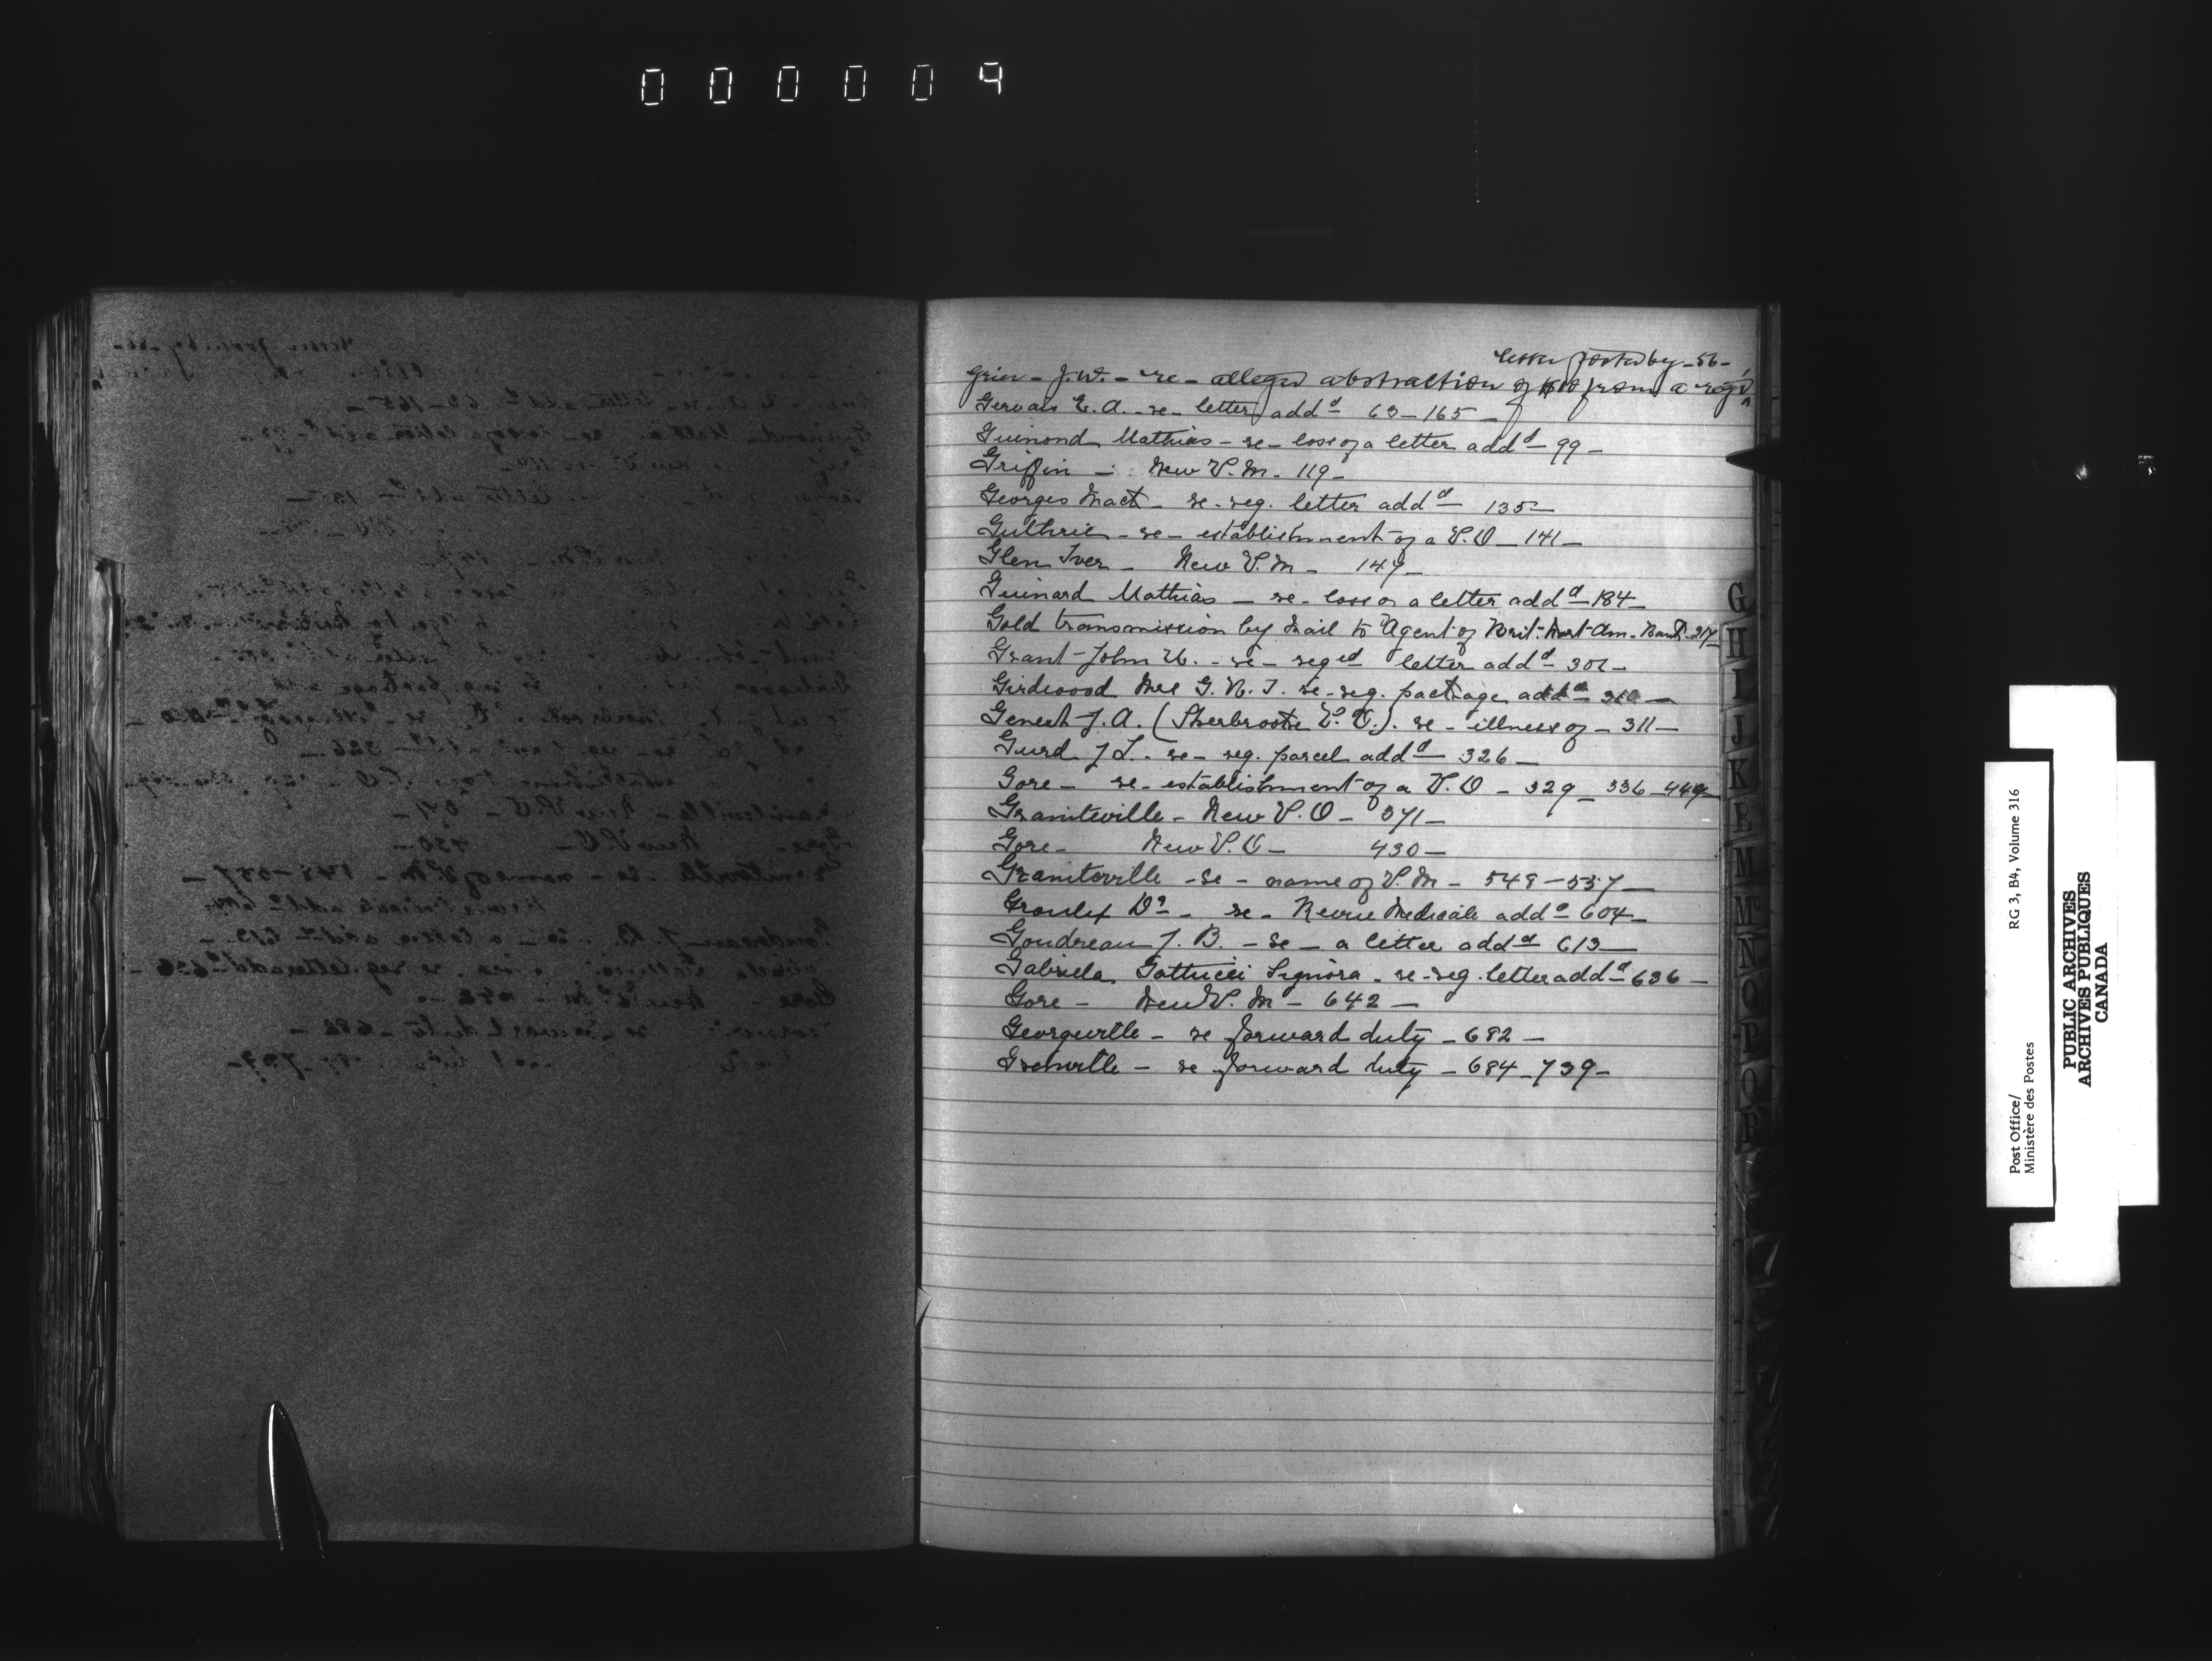 000009
letter posted by - 56 -
Grier - J.W. - re - alleged abstraction of $10 from a regd
Gervais E. A. - re - letter addd 63 - 165 -
Guinond Mathias - re - loss of a letter addd - 99 -
Griffin - New P.M. - 119 -
Georges - re - reg. letter addd - 135 -
Guthrie - re - establishment of a P.O - 141 -
Glen Iver - New P.M - 149 -
Guinard Mathias - re - loss of a letter addd - 184 -
Gold transmission by Mail to Agent of Brit. Nort Am. Bank. 217
Grant - John - re - reged letter addd - 301 -
Girdwood Mrs G. N. T. re - reg. package addd - 310 -
Genest J. A. (Sherbrooke P.O.). re - illness of - 311 -
Gurd J L. - re - reg. parcel addd - 326 -
Gore - re - establishment of a P.O - 329 - 336 - 449 -
Graniteville - New P.O - 371 -
Gore - New P.O - 430 -
Graniteville - re - name of P.M - 548 - 557 -
Groulx Dr - re - Revue Medicale addd - 604 -
Goudreau J. B. - re - a letter addd 613 -
Gabriela Gattucci Signora - re - reg. letter addd - 636 -
Gore - New P.M - 642 -
Georgeville - re forward duty - 682 -
Grenville - re forward duty - 684 - 739 -
G
H
I
J
K
L
M
Mc
N
O
P
Q
R
S
RG 3, B4, Volume 316
Post Office/
Ministère des Postes
PUBLIC ARCHIVES
ARCHIVES PUBLIQUES
CANADA